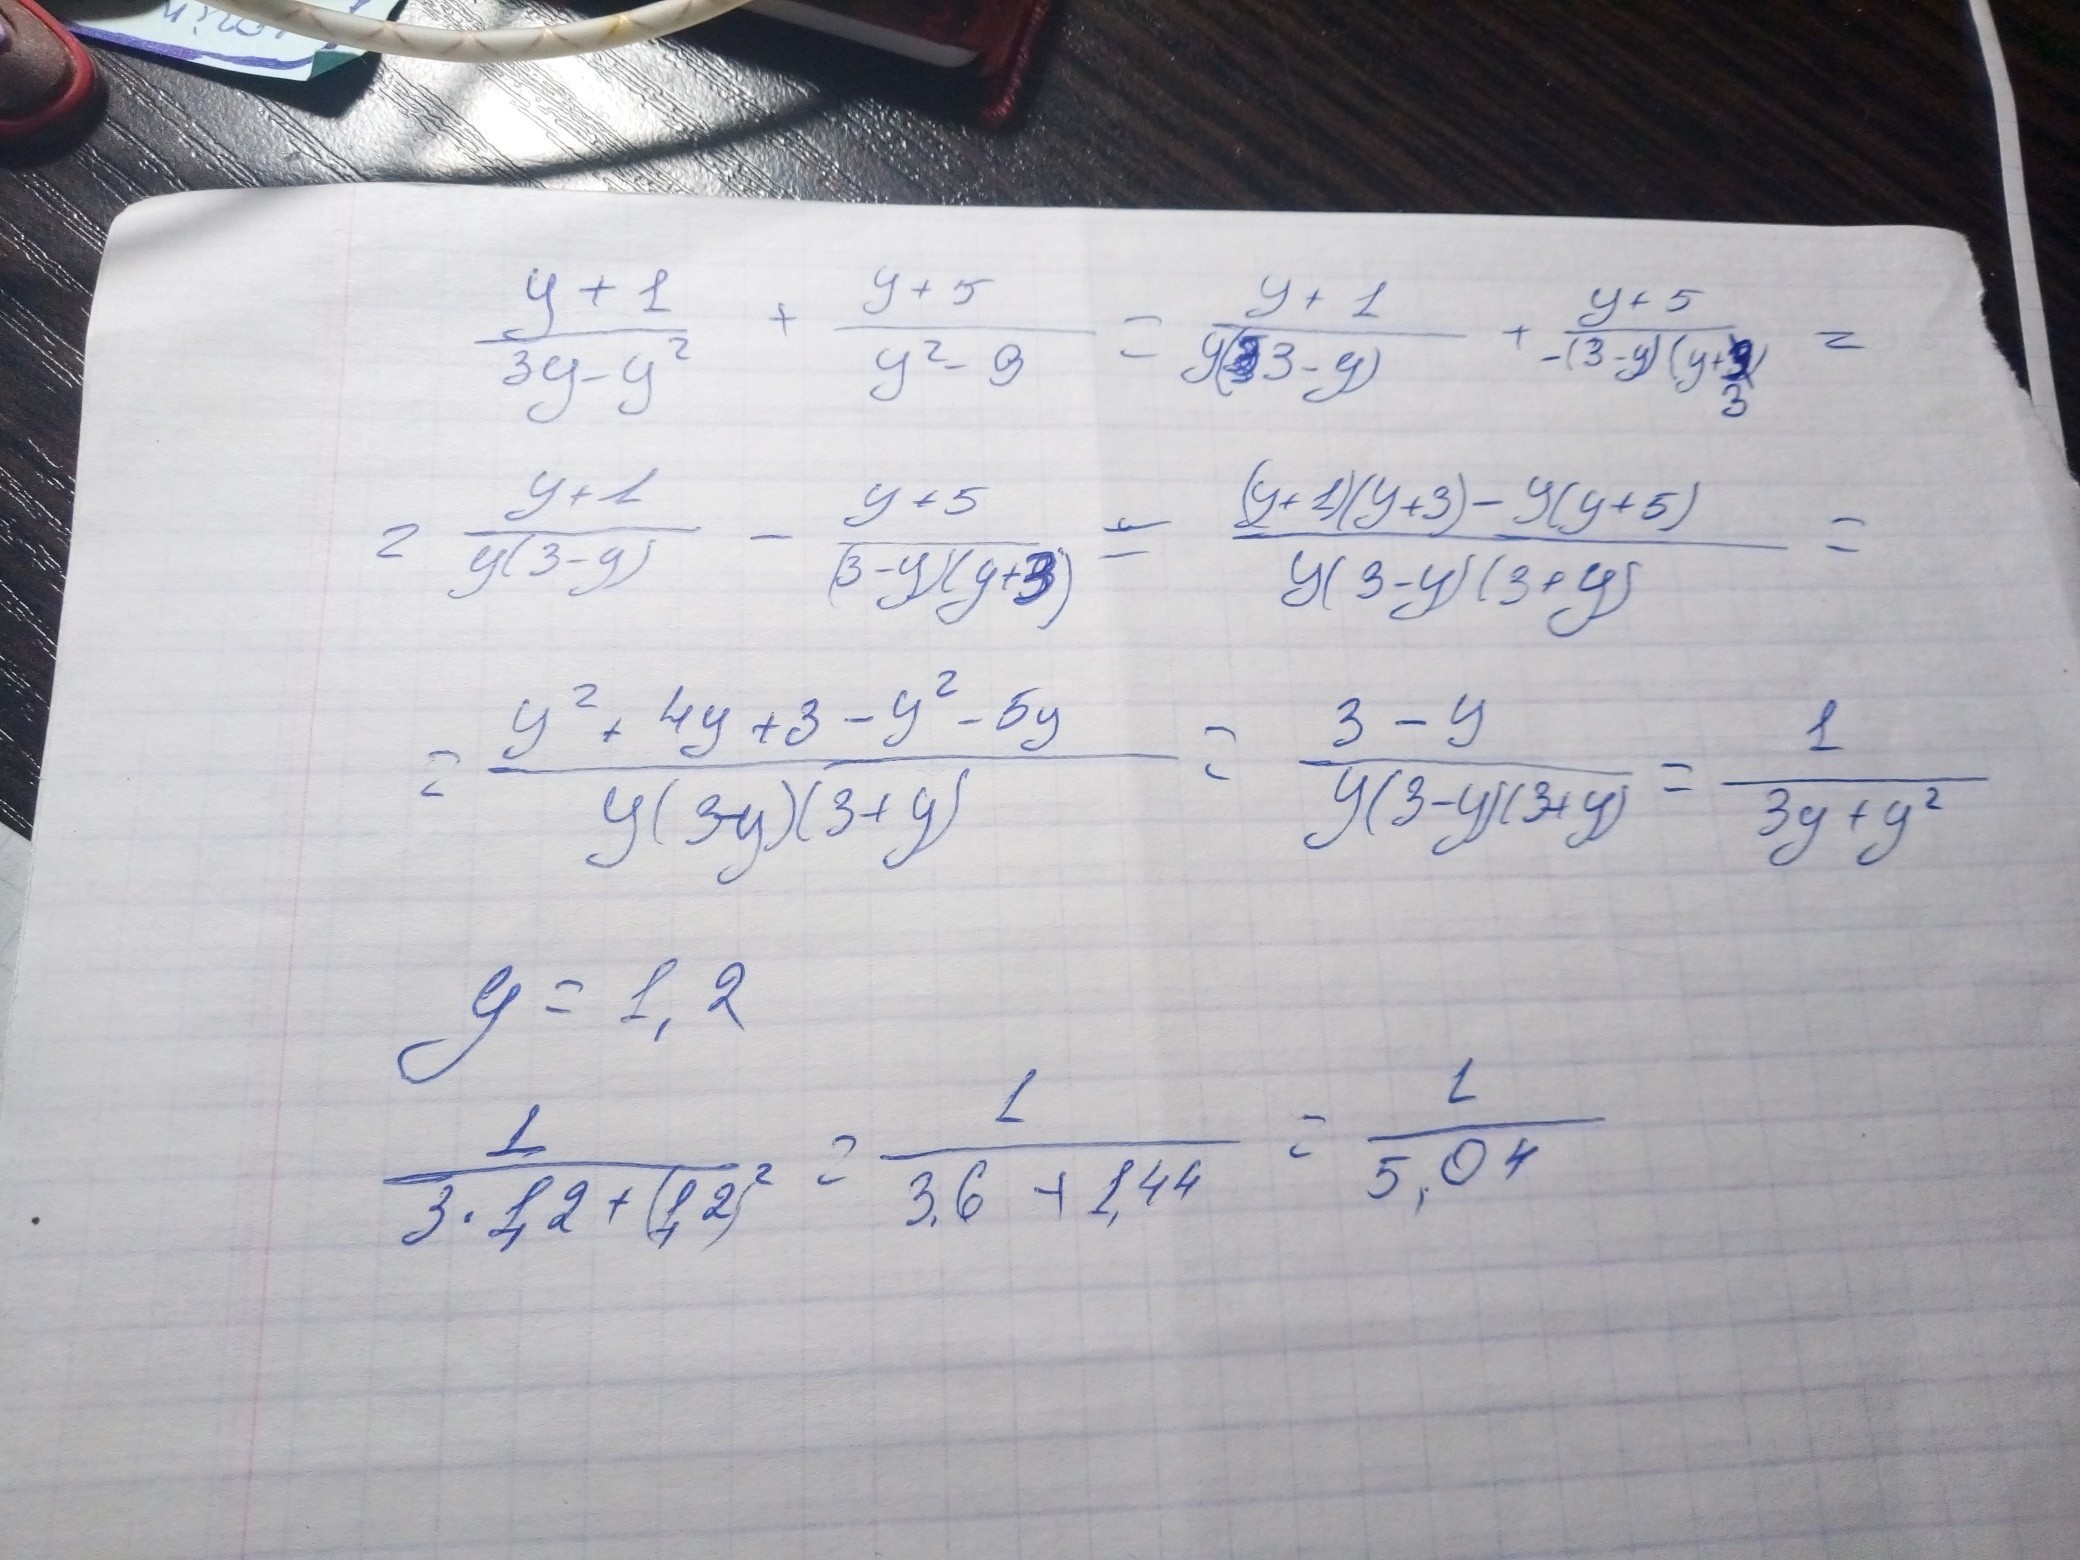 (y+1)/(3y-y²) + (y+5)/(y²-9) = (y+1)/(y(3-y)) + (y+5)/(-(3-y)(y+3)) =
= (y+1)/(y(3-y)) - (y+5)/((3-y)(y+3)) = ((y+1)(y+3)-y(y+5))/(y(3-y)(3+y)) =
= (y²+4y+3-y²-5y)/(y(3-y)(3+y)) = (3-y)/(y(3-y)(3+y)) = 1/(3y+y²)
y = 1,2
1/(3·1,2+(1,2)²) = 1/(3,6+1,44) = 1/5,04